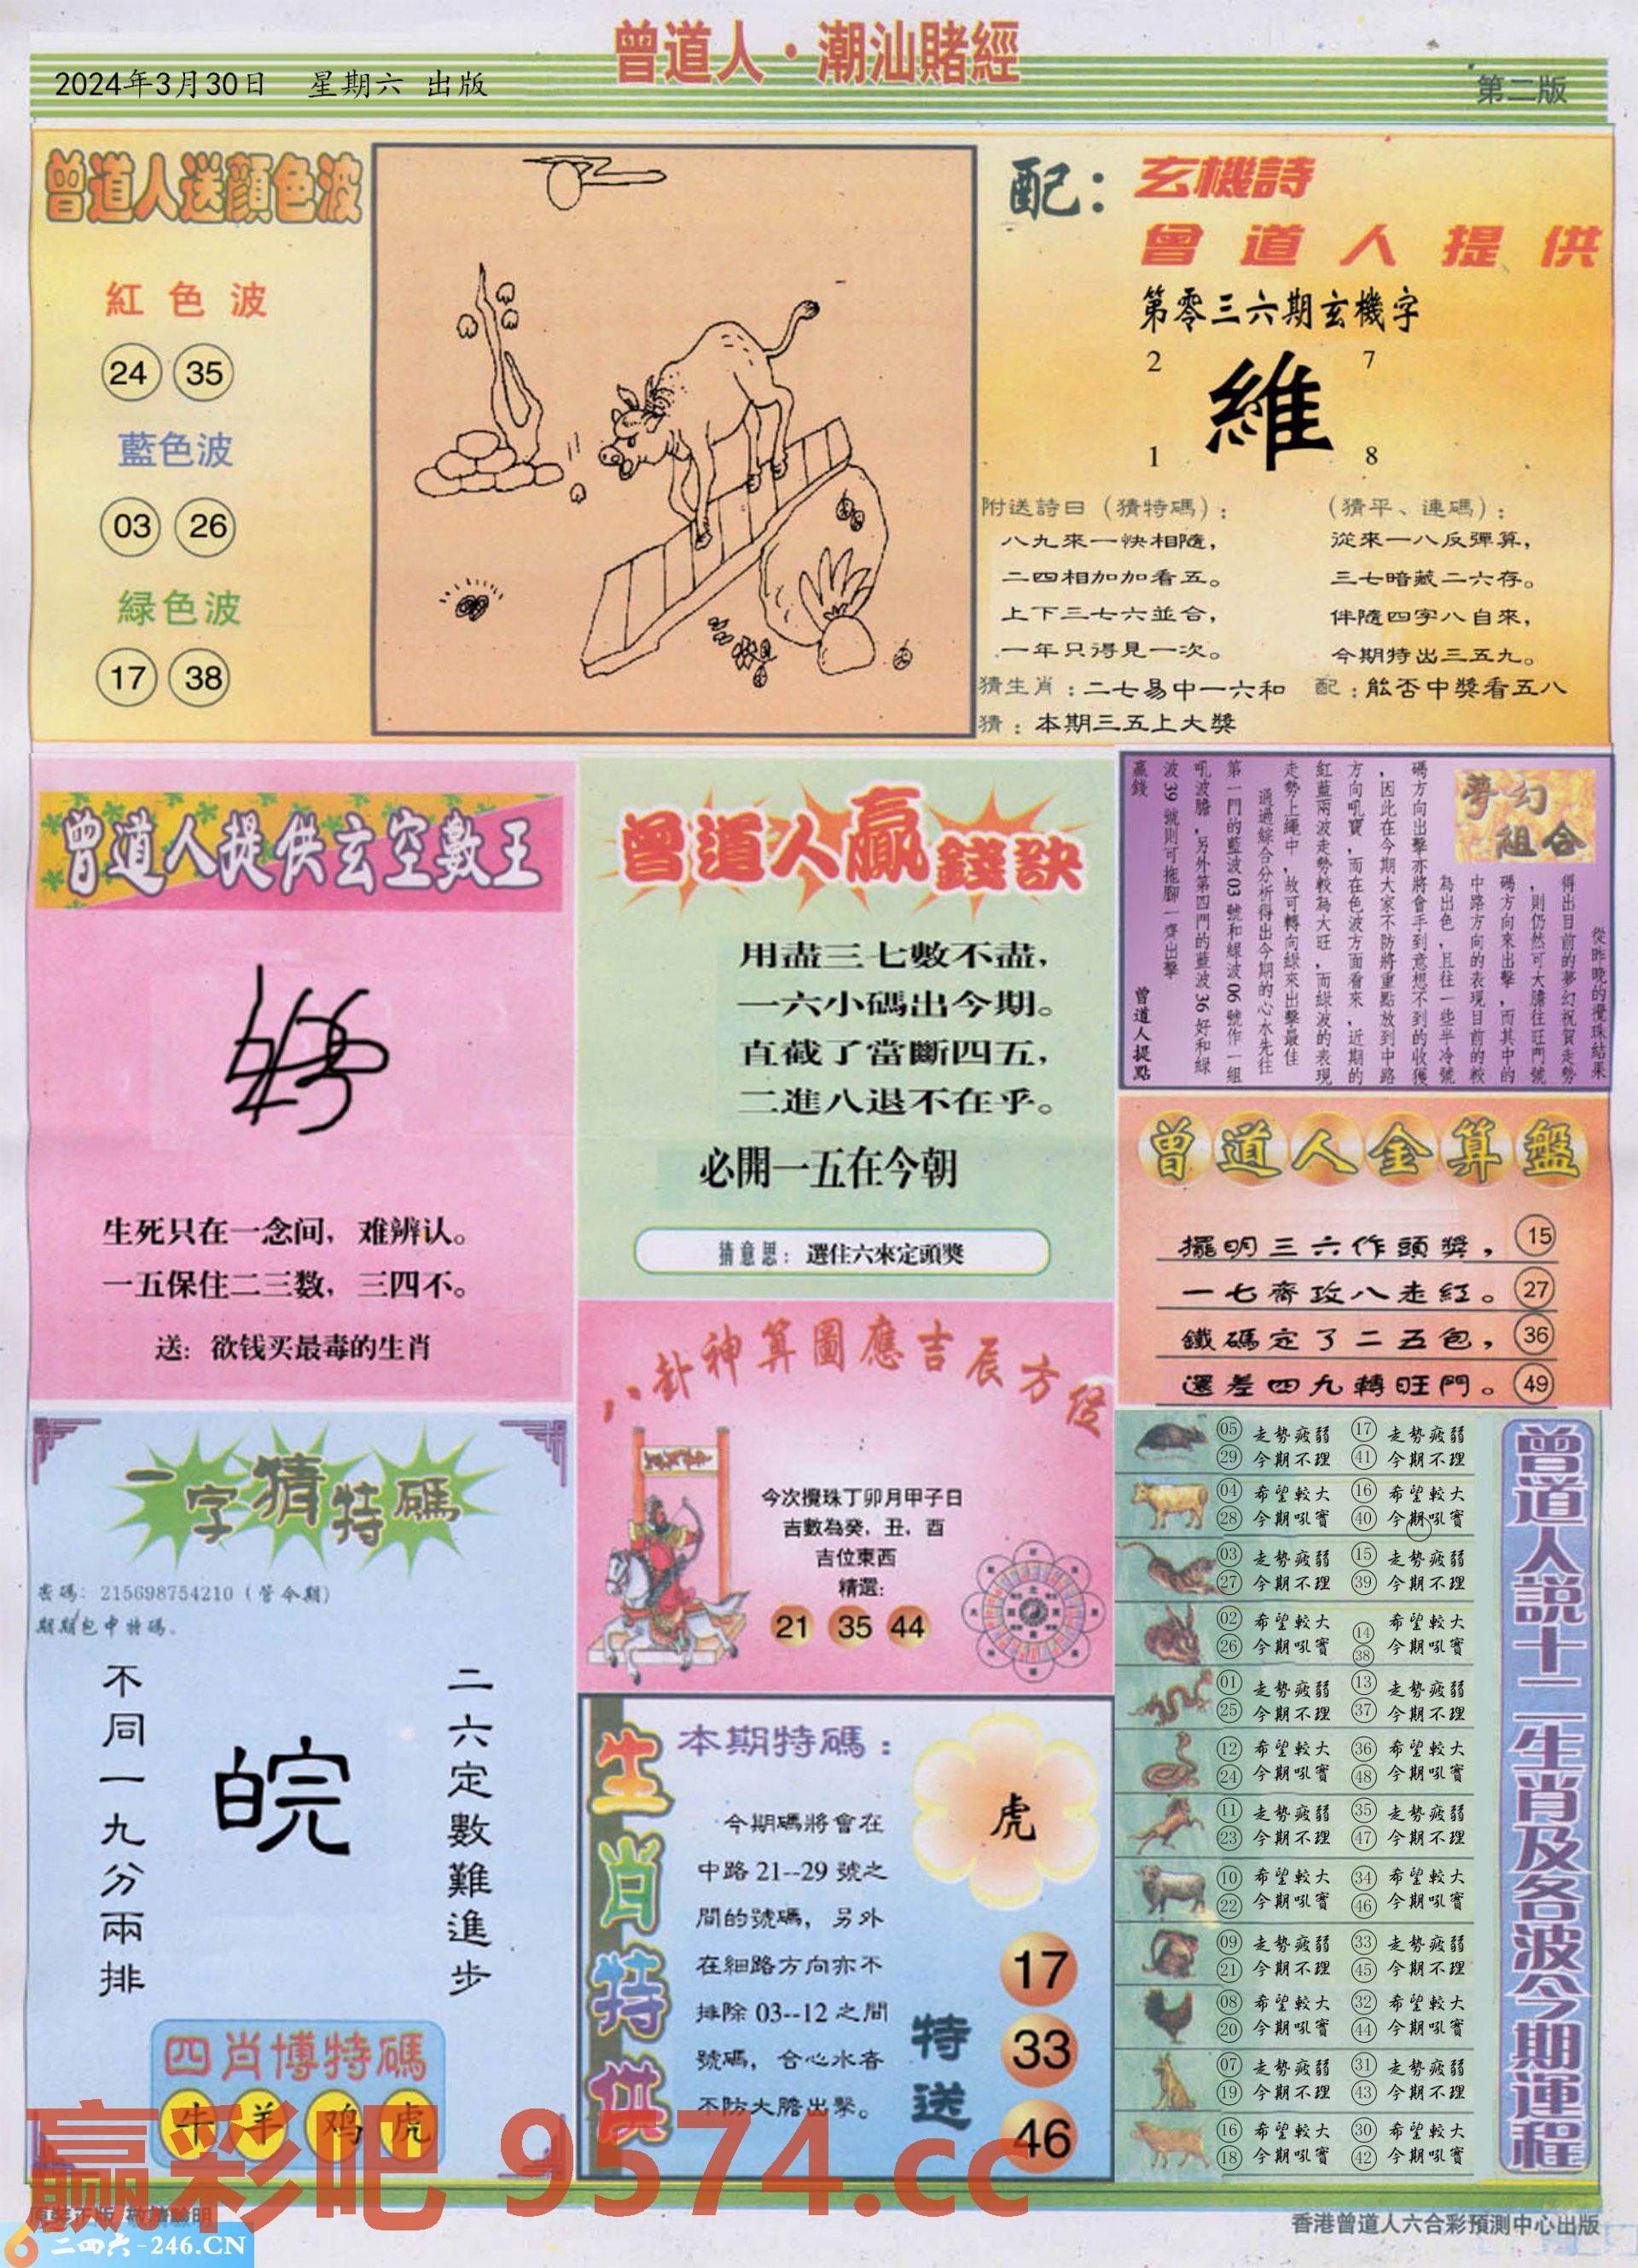 曾道人·潮汕賭經
2024年3月30日 星期六 出版
第二版
曾道人送顏色波
紅色波
24 35
藍色波
03 26
緑色波
17 38
配：玄機詩
曾道人提供
第零三六期玄機字
2 7
維
1 8
附送詩日（猜特碼）：
八九來一快相隨，
二四相加加看五。
上下三七六並合，
一年只得見一次。
（猜平、連碼）：
從來一八反彈算，
三七暗藏二六存。
伴隨四字八自來，
今期特出三五九。
猜生肖：二七易中一六和 配：能否中獎看五八
猜：本期三五上大獎
曾道人提供玄空數王
生死只在一念间，难辨认。
一五保住二三数，三四不。
送：欲钱买最毒的生肖
曾道人贏錢訣
用盡三七數不盡，
一六小碼出今期。
直截了當斷四五，
二進八退不在乎。
必開一五在今朝
猜意思：選住六來定頭獎
夢幻組合
從昨晚的攪珠結果
得出目前的夢幻祝賀走勢
，則仍然可大膽往旺門號
碼方向來出擊，而其中的
中路方向的表現目前的較
為出色，且往一些半冷號
碼方向出擊亦將會手到意想不到的收獲
，因此在今期大家不防將重點放到中路
方向吼寶，而在色波方面看來，近期的
紅藍兩波走勢較為大旺，而綠波的表現
走勢上繩中，故可轉向綠來出擊最佳
通過綜合分析得出今期的心水先往
第一門的藍波03號和綠波06號作一組
吼波膽，另外第四門的藍波36好和綠
波39號則可拖腳一齊出擊
贏錢
曾道人提點
曾道人金算盤
擺明三六作頭獎， 15
一七齊攻八走紅。 27
鐵碼定了二五包， 36
還差四九轉旺門。 49
八卦神算圖應吉辰方位
今次攪珠丁卯月甲子日
吉數為癸，丑，酉
吉位東西
精選：
21 35 44
一字猜特碼
密碼：215698754210（管今期）
期期包中特碼。
二六定數難進步
皖
不同一九分兩排
四肖博特碼
牛 羊 鸡 虎
生肖特供
本期特碼：
虎
今期碼將會在
中路21--29號之
間的號碼，另外
在細路方向亦不
排除03--12之間
號碼，合心水者
不防大膽出擊。
特送
17
33
46
曾道人說十二生肖及各波今期運程
05 走勢疲弱 17 走勢疲弱
29 今期不理 41 今期不理
04 希望較大 16 希望較大
28 今期吼實 40 今期吼實
03 走勢疲弱 15 走勢疲弱
27 今期不理 39 今期不理
02 希望較大 14 希望較大
26 今期吼實 38 今期吼實
01 走勢疲弱 13 走勢疲弱
25 今期不理 37 今期不理
12 希望較大 36 希望較大
24 今期吼實 48 今期吼實
11 走勢疲弱 35 走勢疲弱
23 今期不理 47 今期不理
10 希望較大 34 希望較大
22 今期吼實 46 今期吼實
09 走勢疲弱 33 走勢疲弱
21 今期不理 45 今期不理
08 希望較大 32 希望較大
20 今期吼實 44 今期吼實
07 走勢疲弱 31 走勢疲弱
19 今期不理 43 今期不理
16 希望較大 30 希望較大
18 今期吼實 42 今期吼實
赢彩吧 9574.cc
原裝正版 敬請驗明
二四六-246.CN
香港曾道人六合彩預測中心出版